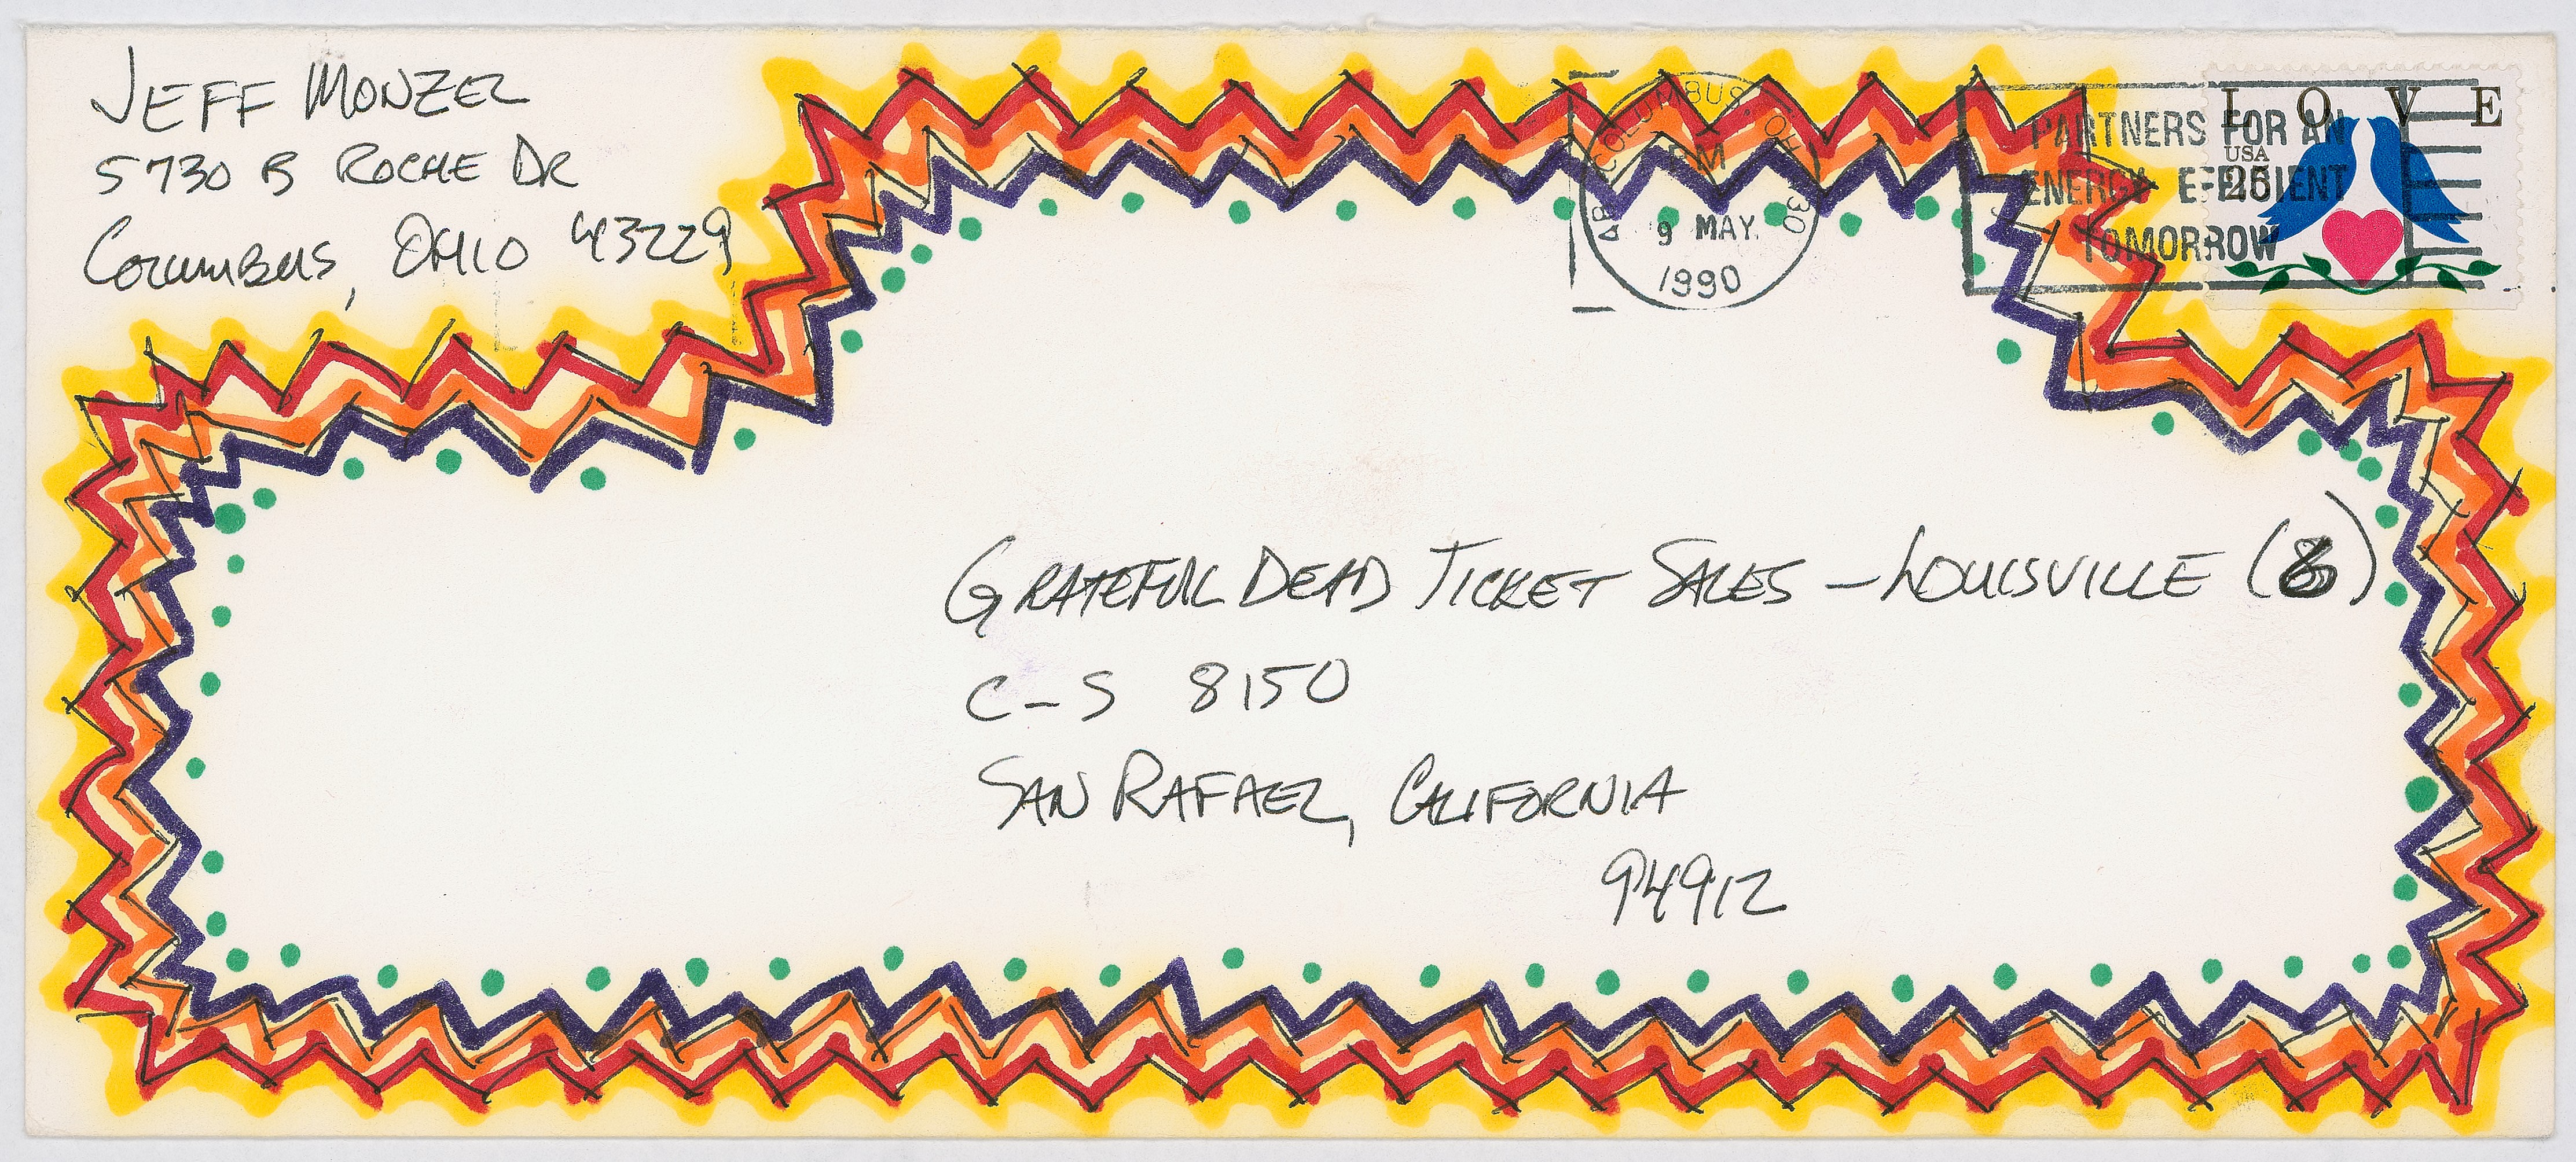 JEFF MONZEL
5730 B ROCHE DR
COLUMBUS, OHIO 43229
COLUMBUS, OH 430
PM
9 MAY
1990
PARTNERS FOR AN
ENERGY EFFICIENT
TOMORROW
LOVE
USA
25
GRATEFUL DEAD TICKET SALES - LOUISVILLE (8)
C-S 8150
SAN RAFAEL, CALIFORNIA
94912